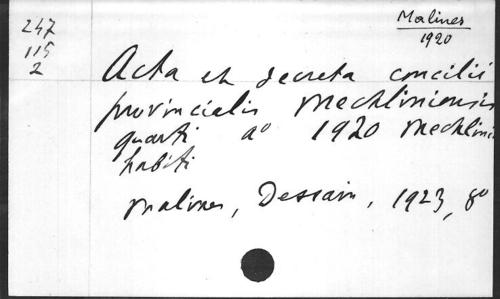 Malines
1920
247
115
2
Acta et decreta concilii
provincialis Mechliniensis
quarti aº 1920 Mechlini
habiti
Malines, Dessain, 1923, 8º